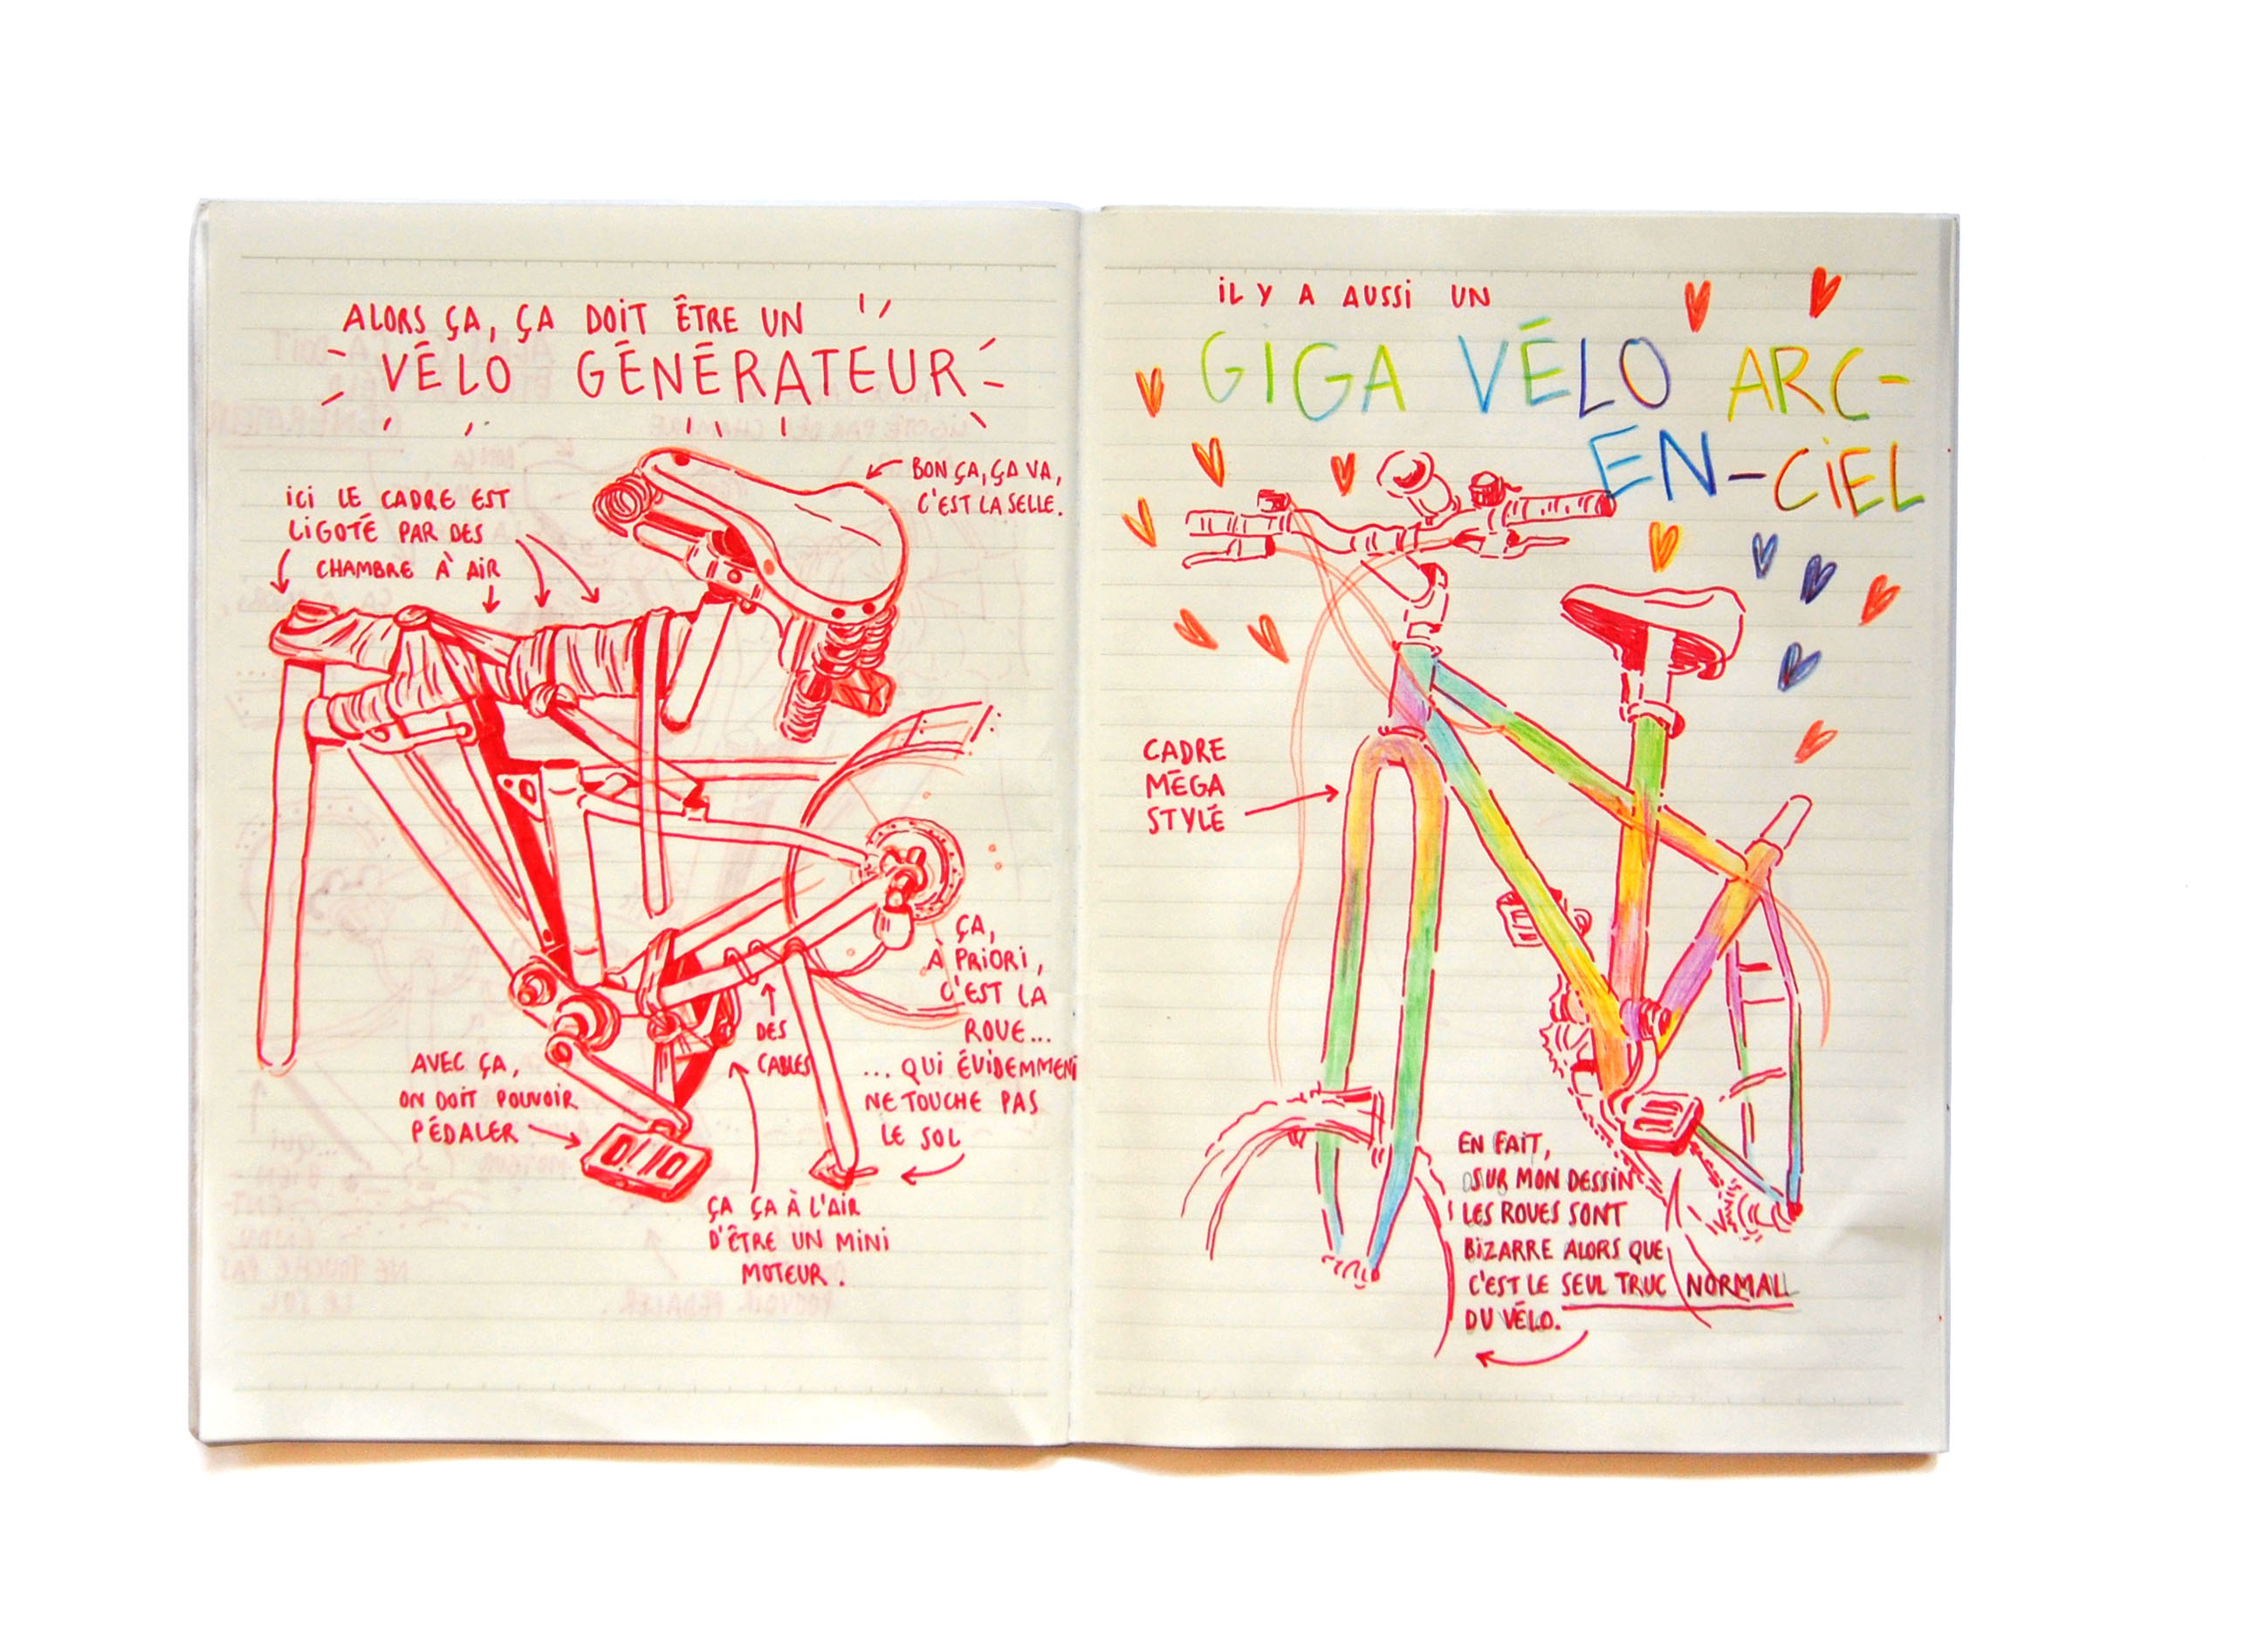 ALORS ÇA, ÇA DOIT ÊTRE UN
VÉLO GÉNÉRATEUR
BON ÇA, ÇA VA,
C'EST LA SELLE.
ICI LE CADRE EST
LIGOTÉ PAR DES
CHAMBRE À AIR
ÇA,
À PRIORI,
C'EST LA
ROUE...
... QUI ÉVIDEMMENT
NE TOUCHE PAS
LE SOL
DES
CABLES
AVEC ÇA,
ON DOIT POUVOIR
PÉDALER
ÇA ÇA À L'AIR
D'ÊTRE UN MINI
MOTEUR.
IL Y A AUSSI UN
GIGA VÉLO ARC-
EN-CIEL
CADRE
MÉGA
STYLÉ
EN FAIT,
SUR MON DESSIN
LES ROUES SONT
BIZARRE ALORS QUE
C'EST LE SEUL TRUC NORMALL
DU VÉLO.